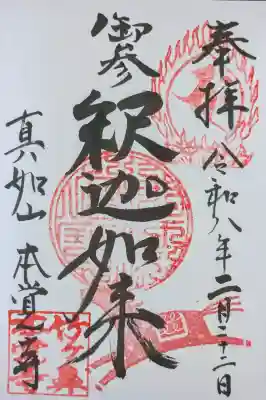 奉拝
令和八年二月二十二日
御参
釈迦如来
真如山
本覚寺